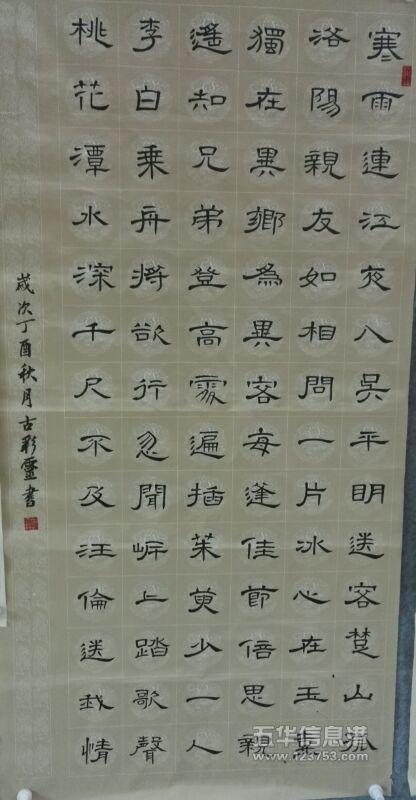 寒雨連江夜入吳平明送客楚山孤
洛陽親友如相問一片冰心在玉壺
獨在異鄉為異客每逢佳節倍思親
遙知兄弟登高處遍插茱萸少一人
李白乘舟將欲行忽聞岸上踏歌聲
桃花潭水深千尺不及汪倫送我情
歲次丁酉秋月古彩靈書
五华信息港
www.123753.com